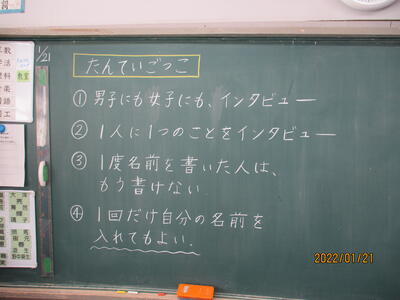 1/21
たんていごっこ
① 男子にも女子にも、インタビュー
② 1人に1つのことをインタビュー
③ 1度名前を書いた人は、
もう書けない
④ 1回だけ自分の名前を
入れてもよい.
教室
2022/01/21